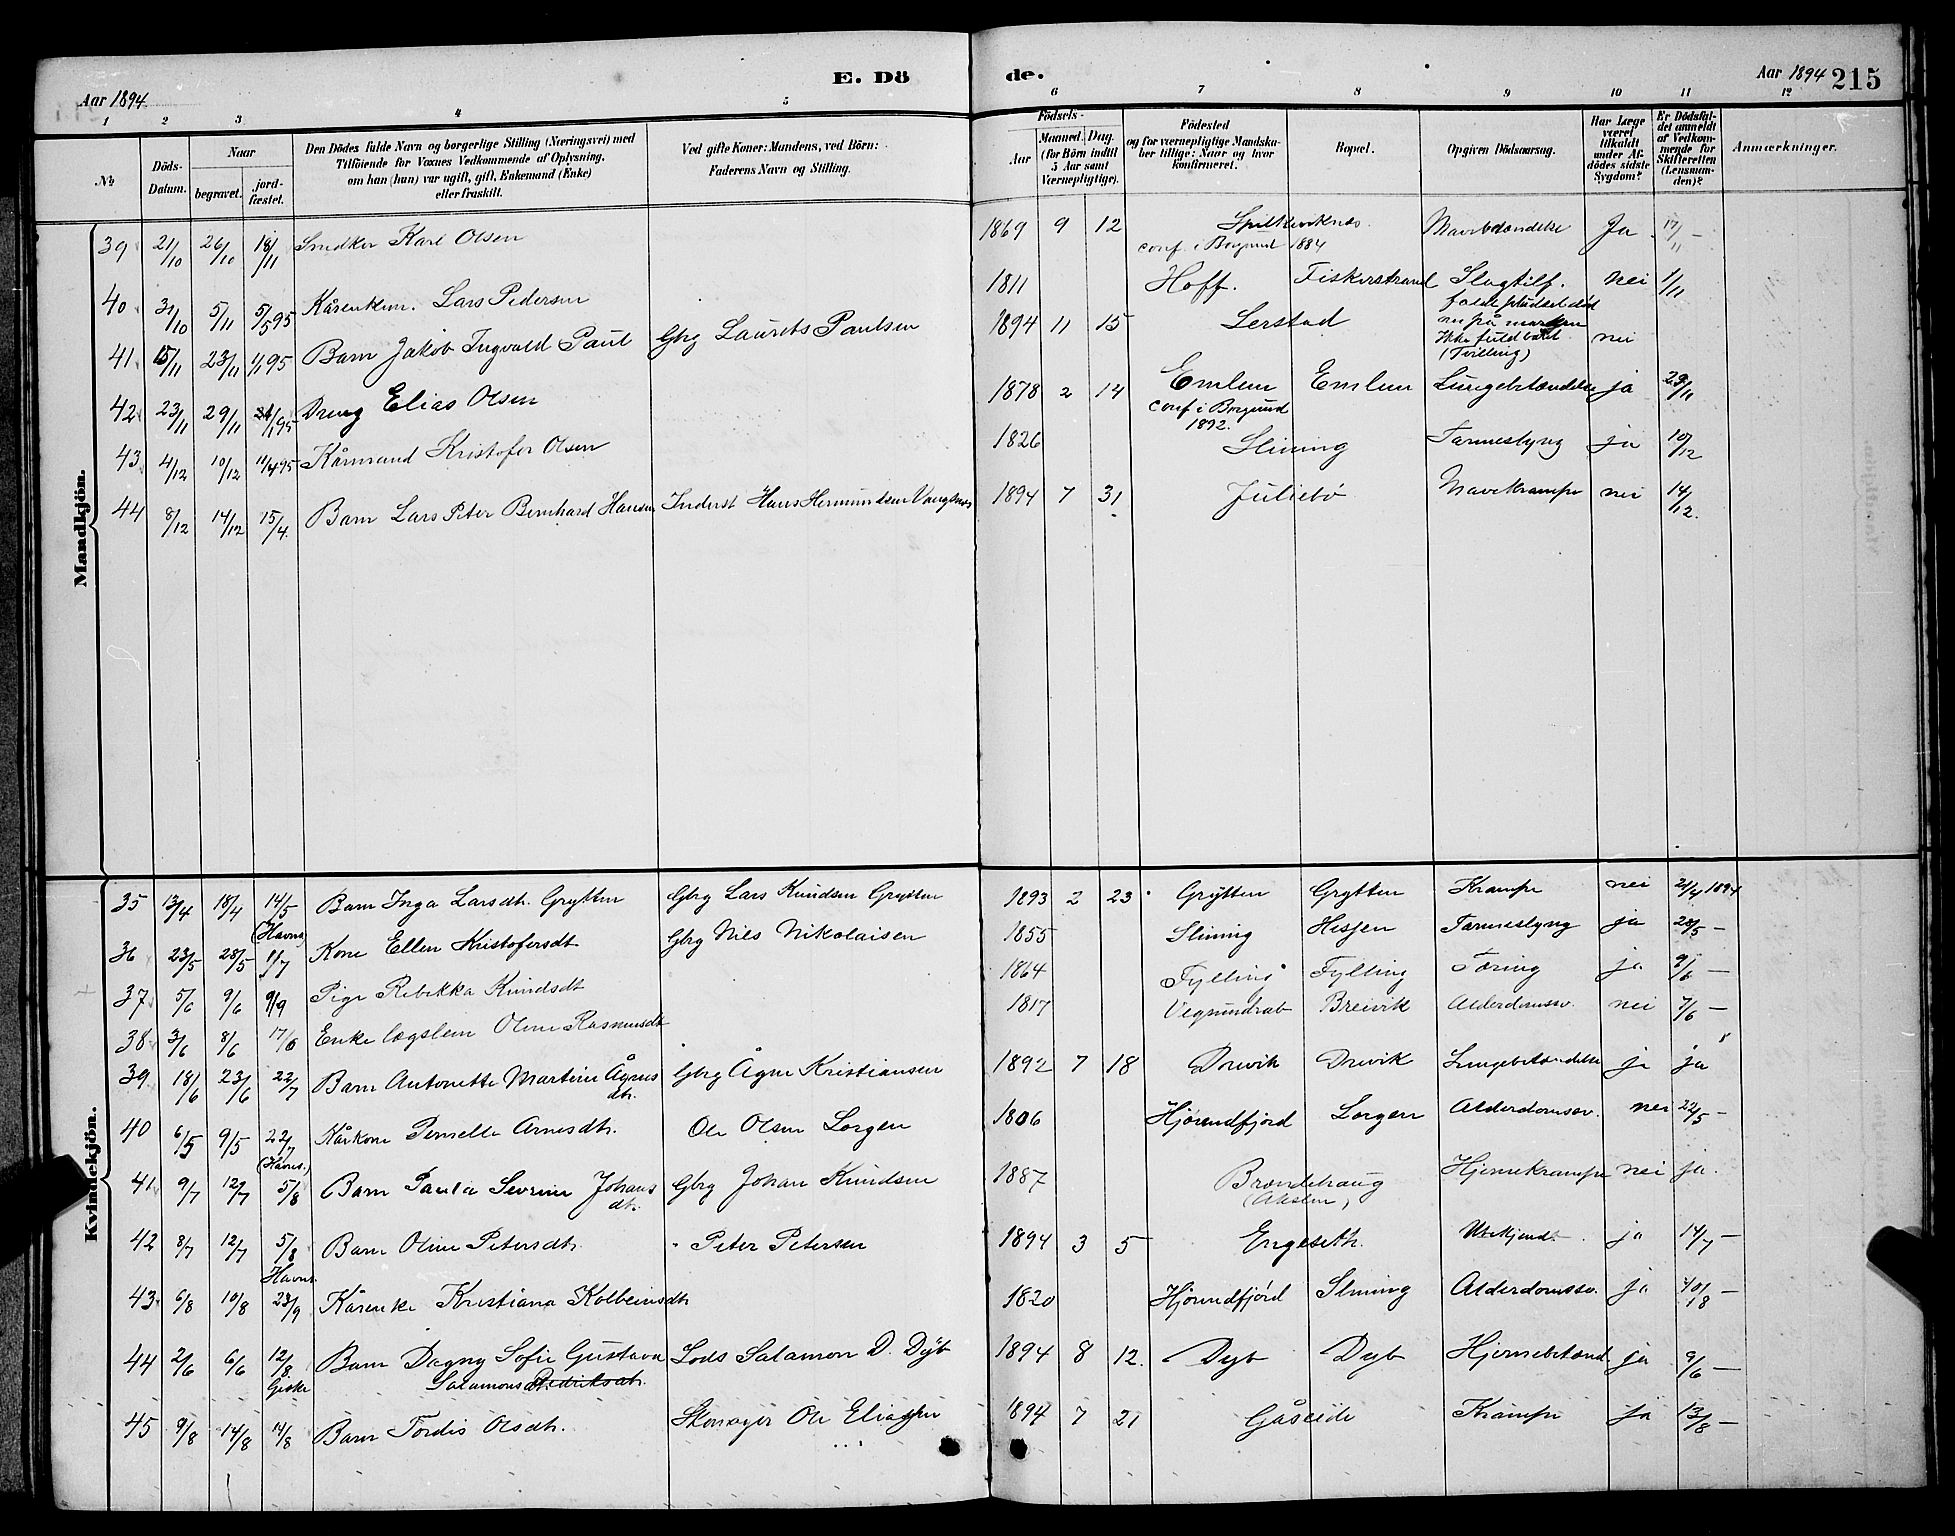 Aar 1894 E. Dö
1 2 3 4 5
№ Döds-Datum. Naar begravet. jord-fæstet. Den Dödes fulde Navn og borgerlige Stilling (Næringsvei) med Tilföiende for Voxnes Vedkommende af Oplysning, om han (hun) var ugift, gift, Enkemand (Enke) eller fraskilt. Ved gifte Koner: Mandens, ved Börn: Faderens Navn og Stilling.
de. Aar 1894 215
6 7 8 9 10 11 12
Födsels- Aar Maaned. Dag. (for Börn indtil 5 Aar samt Værnepligtige). Födested og for værnepligtige Mandskaber tillige: Naar og hvor konfirmeret. Bopæl. Opgiven Dödsaarsag. Har Læge været tilkaldt under Afdödes sidste Sygdom? Er Dödsfaldet anmeldt af Vedkommende for Skifteretten (Lensmanden)? Anmærkninger.
Mandkjön.
39 21/10 26/10 18/11 Snedker Karl Olsen 1869 9 12 Spilkeviknes Mavebetændelse Ja 17/11 –
conf. i Borgund 1884
40 31/10 5/11 5/5 95 Kårenkem. Lars Pedersen 1811 Hoff. Fiskerstrand Slagtilf. nei 1/11
falde pludsel død
ne på marken
41 15/11 23/11 1/1 95 Barn Jakob Ingvald Paul Gbrg Laurits Paulsen 1894 11 15 Lerstad Ikke fuldbåret nei
(Tvilling)
42 23/11 29/11 95 Dreng Elias Olsen 1878 2 14 Emlem Emlem Lungebetændelse ja 29/11
conf i Borgund
1892.
43 4/12 10/12 11/4 95 Kårmand Kristofer Olsen 1826 Slining Tarmeslyng ja 10/12
44 8/12 14/12 15/4. Barn Lars Peter Bernhard Hansen Inderst Hans Hermundsen Vangsnes 1894 7 31 Juliebø Mavekrampe nei 14/12.
Kvindekjön.
35 13/4 18/4 14/5 Barn Inga Larsdtr. Grytten Gbrg Lars Knudsen Grytten 1893 2 23 Grytten Grytten Krampe nei 21/4 1894
(Havns)
36 23/5 28/5 1/7 Kone Ellen Kristofersdt Gbrg Nils Nikolaisen 1855 Slining Hessen Tarmeslyng ja 28/5 –
37 5/6 9/6 9/9 Pige Rebekka Knudsdt 1864 Fylling Fylling Tæring ja 9/6 –
38 3/6 8/6 17/6 Enke lægslem Oline Rasmusdt 1817 Vegsundsab Breivik Alderdomssv. nei 7/6 –
39 18/6 23/6 22/7 Barn Antonette Martine Ågnes Gbrg Ågne Kristiansen 1892 7 18 Drevik Drevik Lungebetændelse ja ja
dtr.
40 6/5 9/5 22/7 Kårkone Pernelle Arnesdtr. Ole Olsen Lorgen 1806 Hjørundfjord Lorgen Alderdomssv. nei 22/5 –
(Havns.)
41 9/7 12/7 5/8 Barn Paula Severine Johans Gbrg Johan Knudsen 1887 Brændehaug Hjernekrampe nei ja.
dtr. (Akslen)
42 8/7 12/7 5/8 Barn Oline Petersdtr. " Peter Petersen 1894 3 5 Engeseth. Ubekjendt. ja 14/7 –
Havns.
43 6/8 10/8 23/9 Kårenke Kristiana Kolbeinsdt 1820 Hjørundfjord Slining Alderdomssv. ja 10/8 –
44 2/6 6/6 12/8. Barn Dagny Sofie Gustava Lods Salamon D. Dyb 1894 8 12. Dyb Dyb Hjernebetænd. ja 9/6 –
Giske Salamonsdt. Fredriksdt.
45 9/8 14/8 14/8 Barn Tordis Olsdtr. Skomager Ole Eliassen 1894 7 21 Gåseide Krampe ja 13/8 –